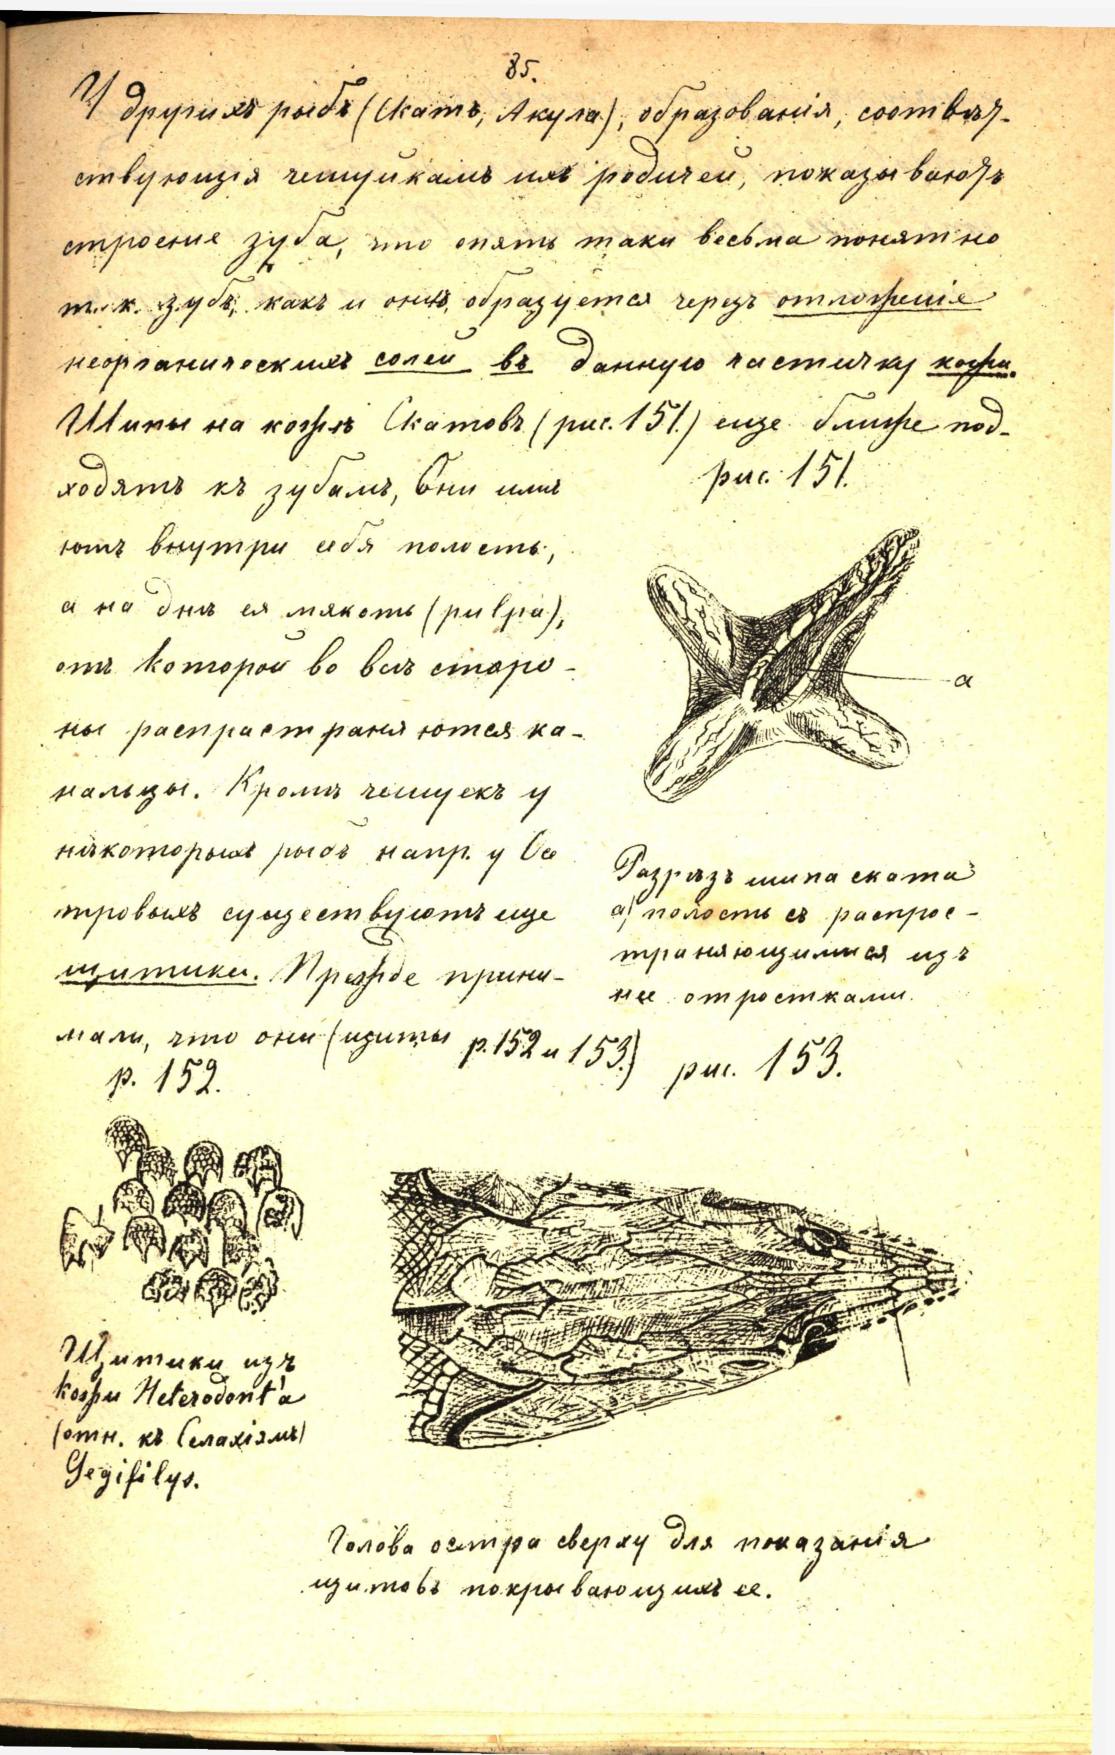 85.
У другихъ рыбъ (Скатъ, Акула), образованія, соотвѣт-
ствующія чешуйкамъ ихъ родичей, показываютъ
строение зуба, что опять таки весьма понятно
т. к. зубъ, какъ и они, образуется черезъ отложеніе
неорганическихъ солей въ данную частичку кожи.
Шипы на кожѣ Скатовъ (рис. 151.) еще ближе под-
ходятъ къ зубамъ, Они имѣ
ютъ внутри себя полость,
а на днѣ ея мякоть (pulpa),
отъ которой во всѣ сторо-
ны распрастраняются ка-
нальцы. Кромѣ чешуекъ у
нѣкоторыхъ рыбъ напр. у Осе
тровыхъ существуютъ еще
щитики. Прежде прини-
мали, что они (щиты р. 152 и 153.)
рис. 151.
а
Разрѣзъ шипа ската
а) полость съ распрос-
траняющимися изъ
нее отростками.
р. 152.
Щитики изъ
кожи Heterodont'а
(отн. къ Селахіямъ)
рис. 153.
Голова осетра сверху для показанія
щитовъ покрывающихъ ее.